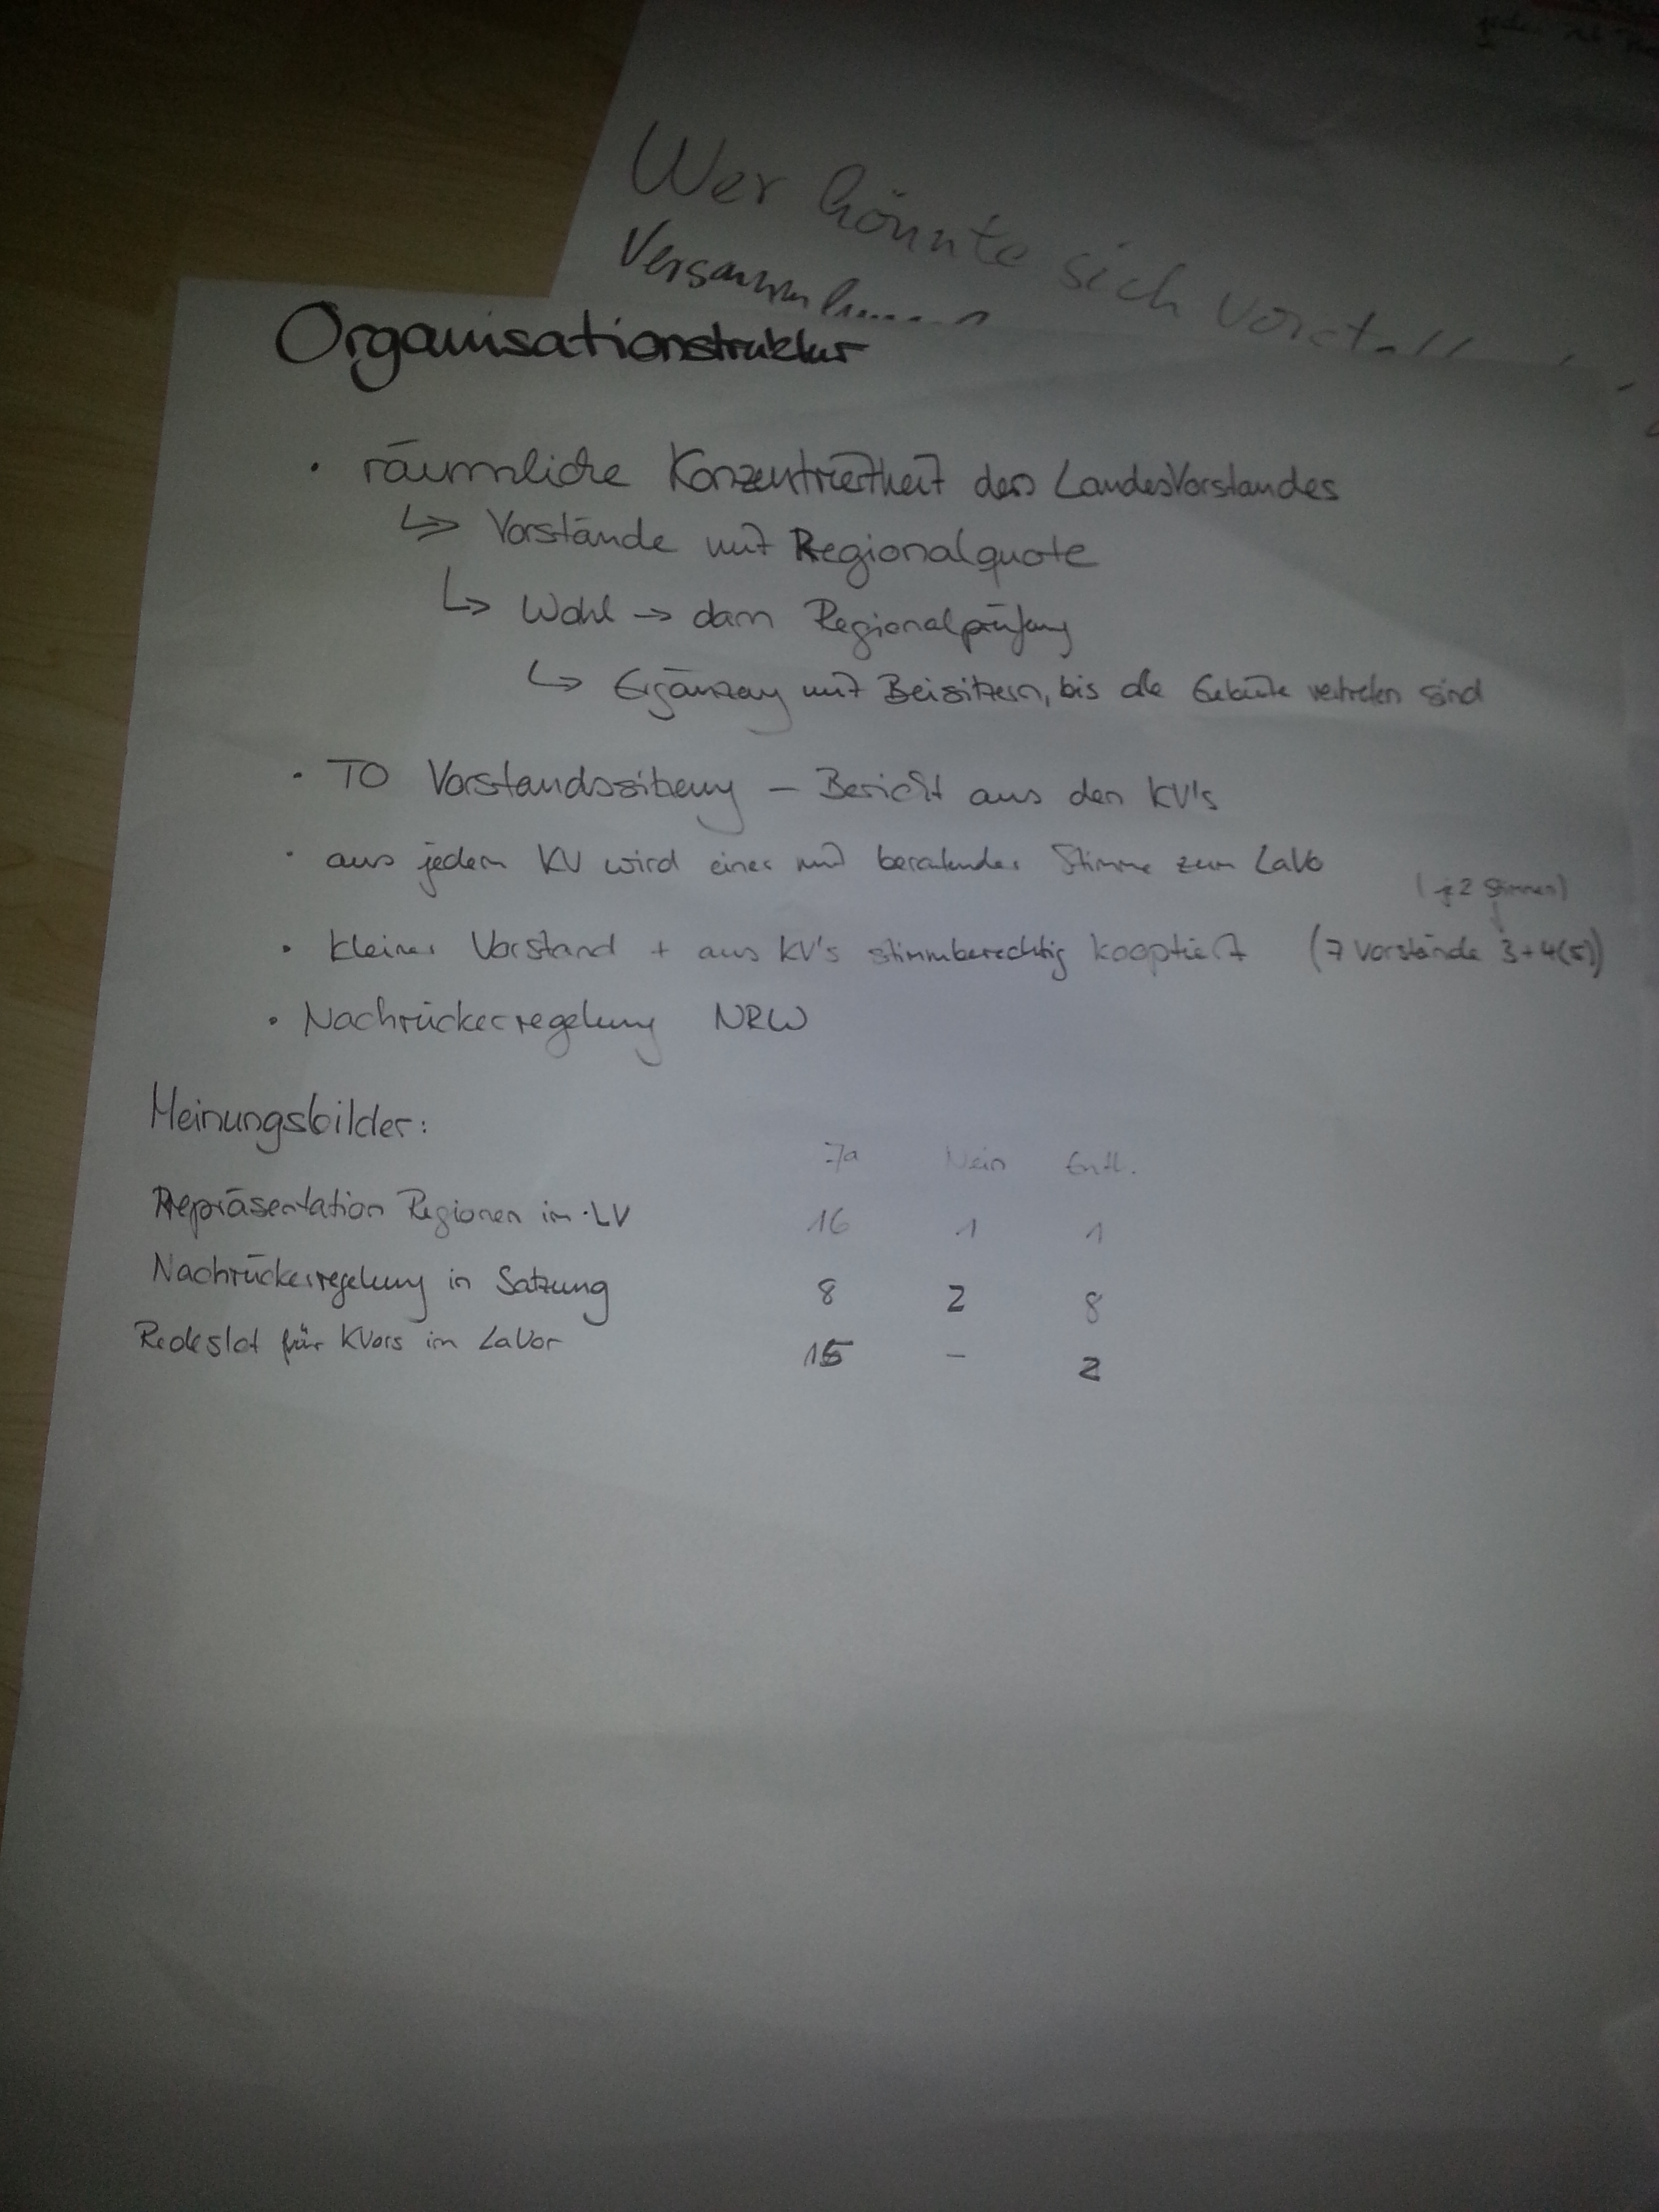 Wer könnte sich
Organisationstruktur
• räumliche Konzentriertheit des LandesVorstandes
↳ Vorstände mit Regionalquote
↳ Wahl → dann Regionalprüfung
↳ Ergänzung mit Beisitzern, bis alle Gebiete vertreten sind
• TO Vorstandssitzung – Bericht aus den KV's
• aus jedem KV wird einer mit beratender Stimme zum LaVo
(je 2 Stimmen)
• kleiner Vorstand + aus KV's stimmberechtig kooptiert (7 Vorstände 3+4(5))
• Nachrückerregelung NRW
Meinungsbilder:
Ja Nein Enth.
Repräsentation Regionen im LV 16 1 1
Nachrückerregelung in Satzung 8 2 8
Redeslot für KVors im LaVor - 2